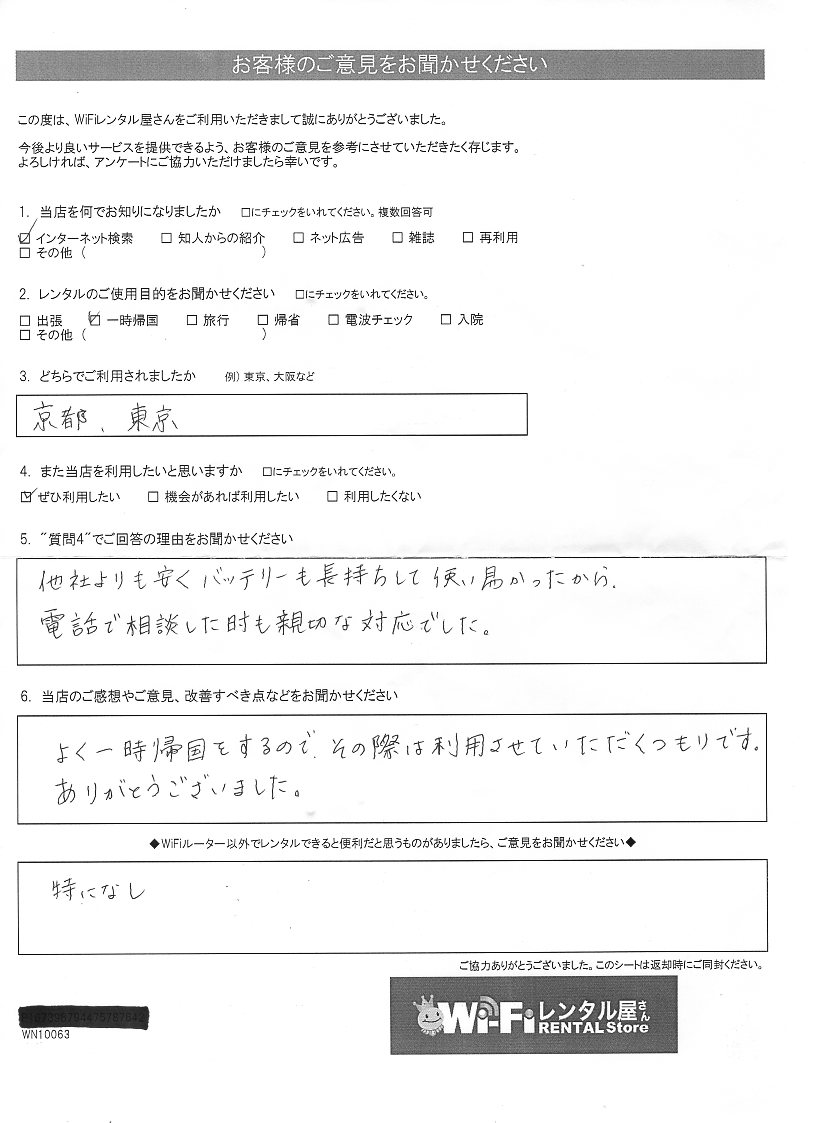 お客様のご意見をお聞かせください
この度は、WiFiレンタル屋さんをご利用いただきまして誠にありがとうございました。
今後より良いサービスを提供できるよう、お客様のご意見を参考にさせていただきたく存じます。
よろしければ、アンケートにご協力いただけましたら幸いです。
1. 当店を何でお知りになりましたか □にチェックをいれてください。複数回答可
☑ インターネット検索 □ 知人からの紹介 □ ネット広告 □ 雑誌 □ 再利用
□ その他 ( )
2. レンタルのご使用目的をお聞かせください □にチェックをいれてください。
□ 出張 ☑ 一時帰国 □ 旅行 □ 帰省 □ 電波チェック □ 入院
□ その他 ( )
3. どちらでご利用されましたか 例) 東京、大阪など
京都、東京
4. また当店を利用したいと思いますか □にチェックをいれてください。
☑ ぜひ利用したい □ 機会があれば利用したい □ 利用したくない
5. “質問4”でご回答の理由をお聞かせください
他社よりも安くバッテリーも長持ちして使い易かったから、
電話で相談した時も親切な対応でした。
6. 当店のご感想やご意見、改善すべき点などをお聞かせください
よく一時帰国をするので、その際は利用させていただくつもりです。
ありがとうございました。
◆WiFiルーター以外でレンタルできると便利だと思うものがありましたら、ご意見をお聞かせください◆
特になし
ご協力ありがとうございました。このシートは返却時にご同封ください。
WN10063
Wi-Fiレンタル屋さん
RENTAL Store